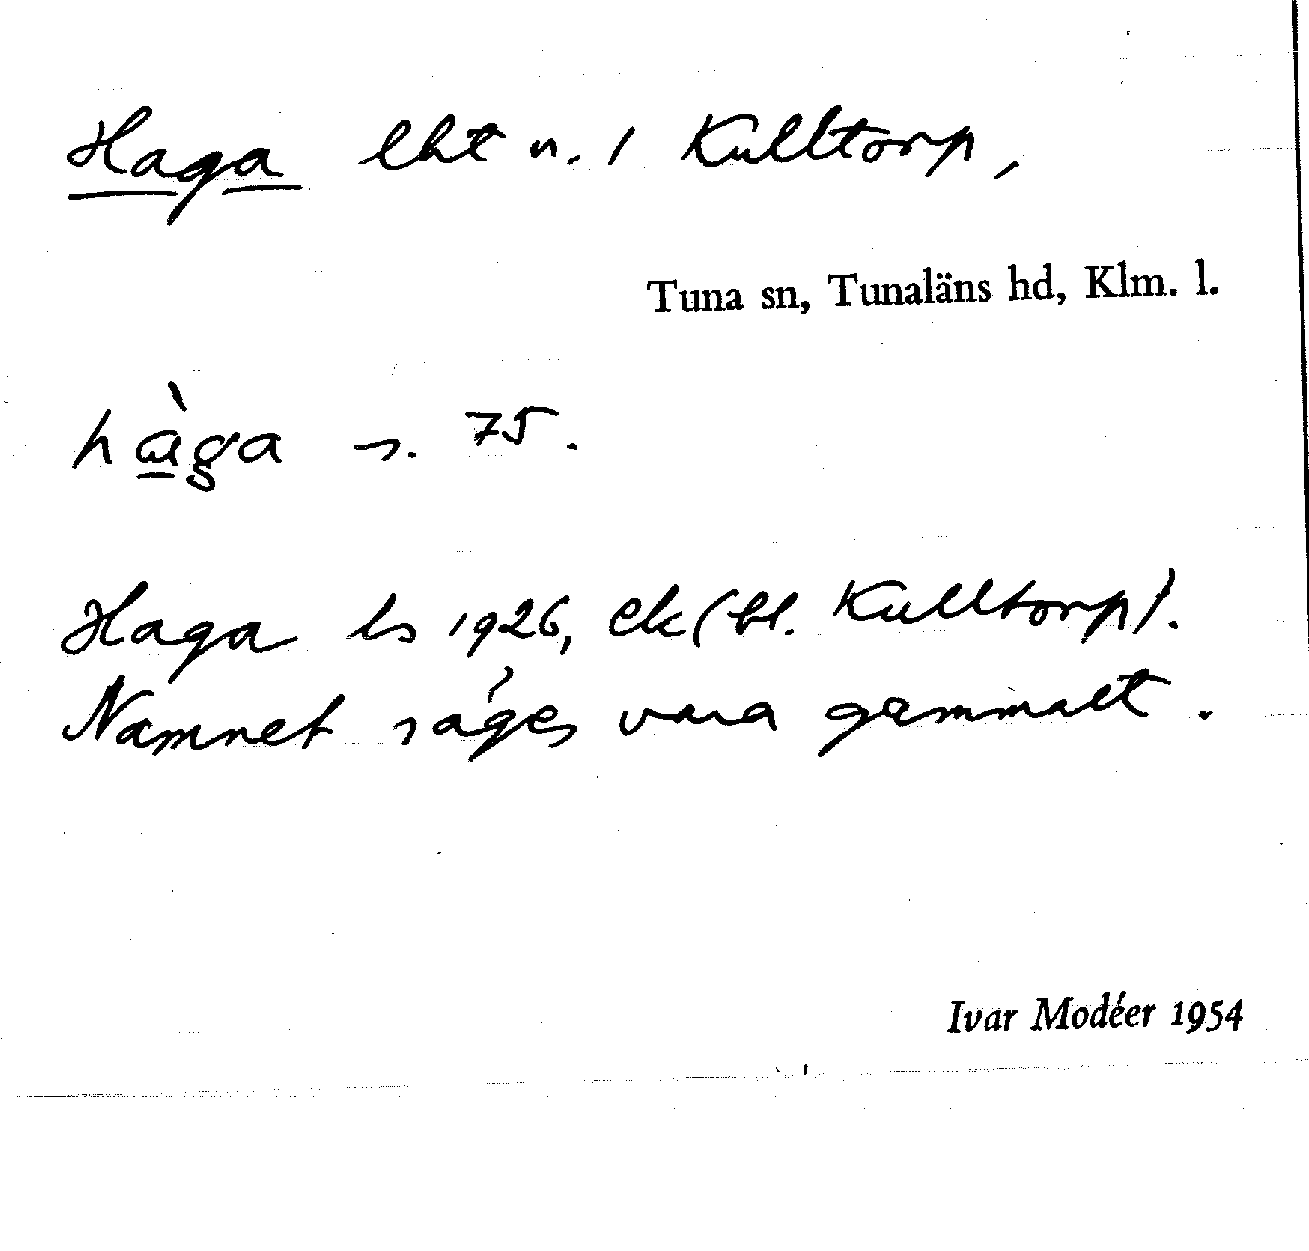 Haga lht n. 1 Kulltorp,
Tuna sn, Tunaläns hd, Klm. l.
hàga s. 75.
Haga ls 1926, ek (bl. Kulltorp).
Namnet säges vara gammalt.
Ivar Modéer 1954